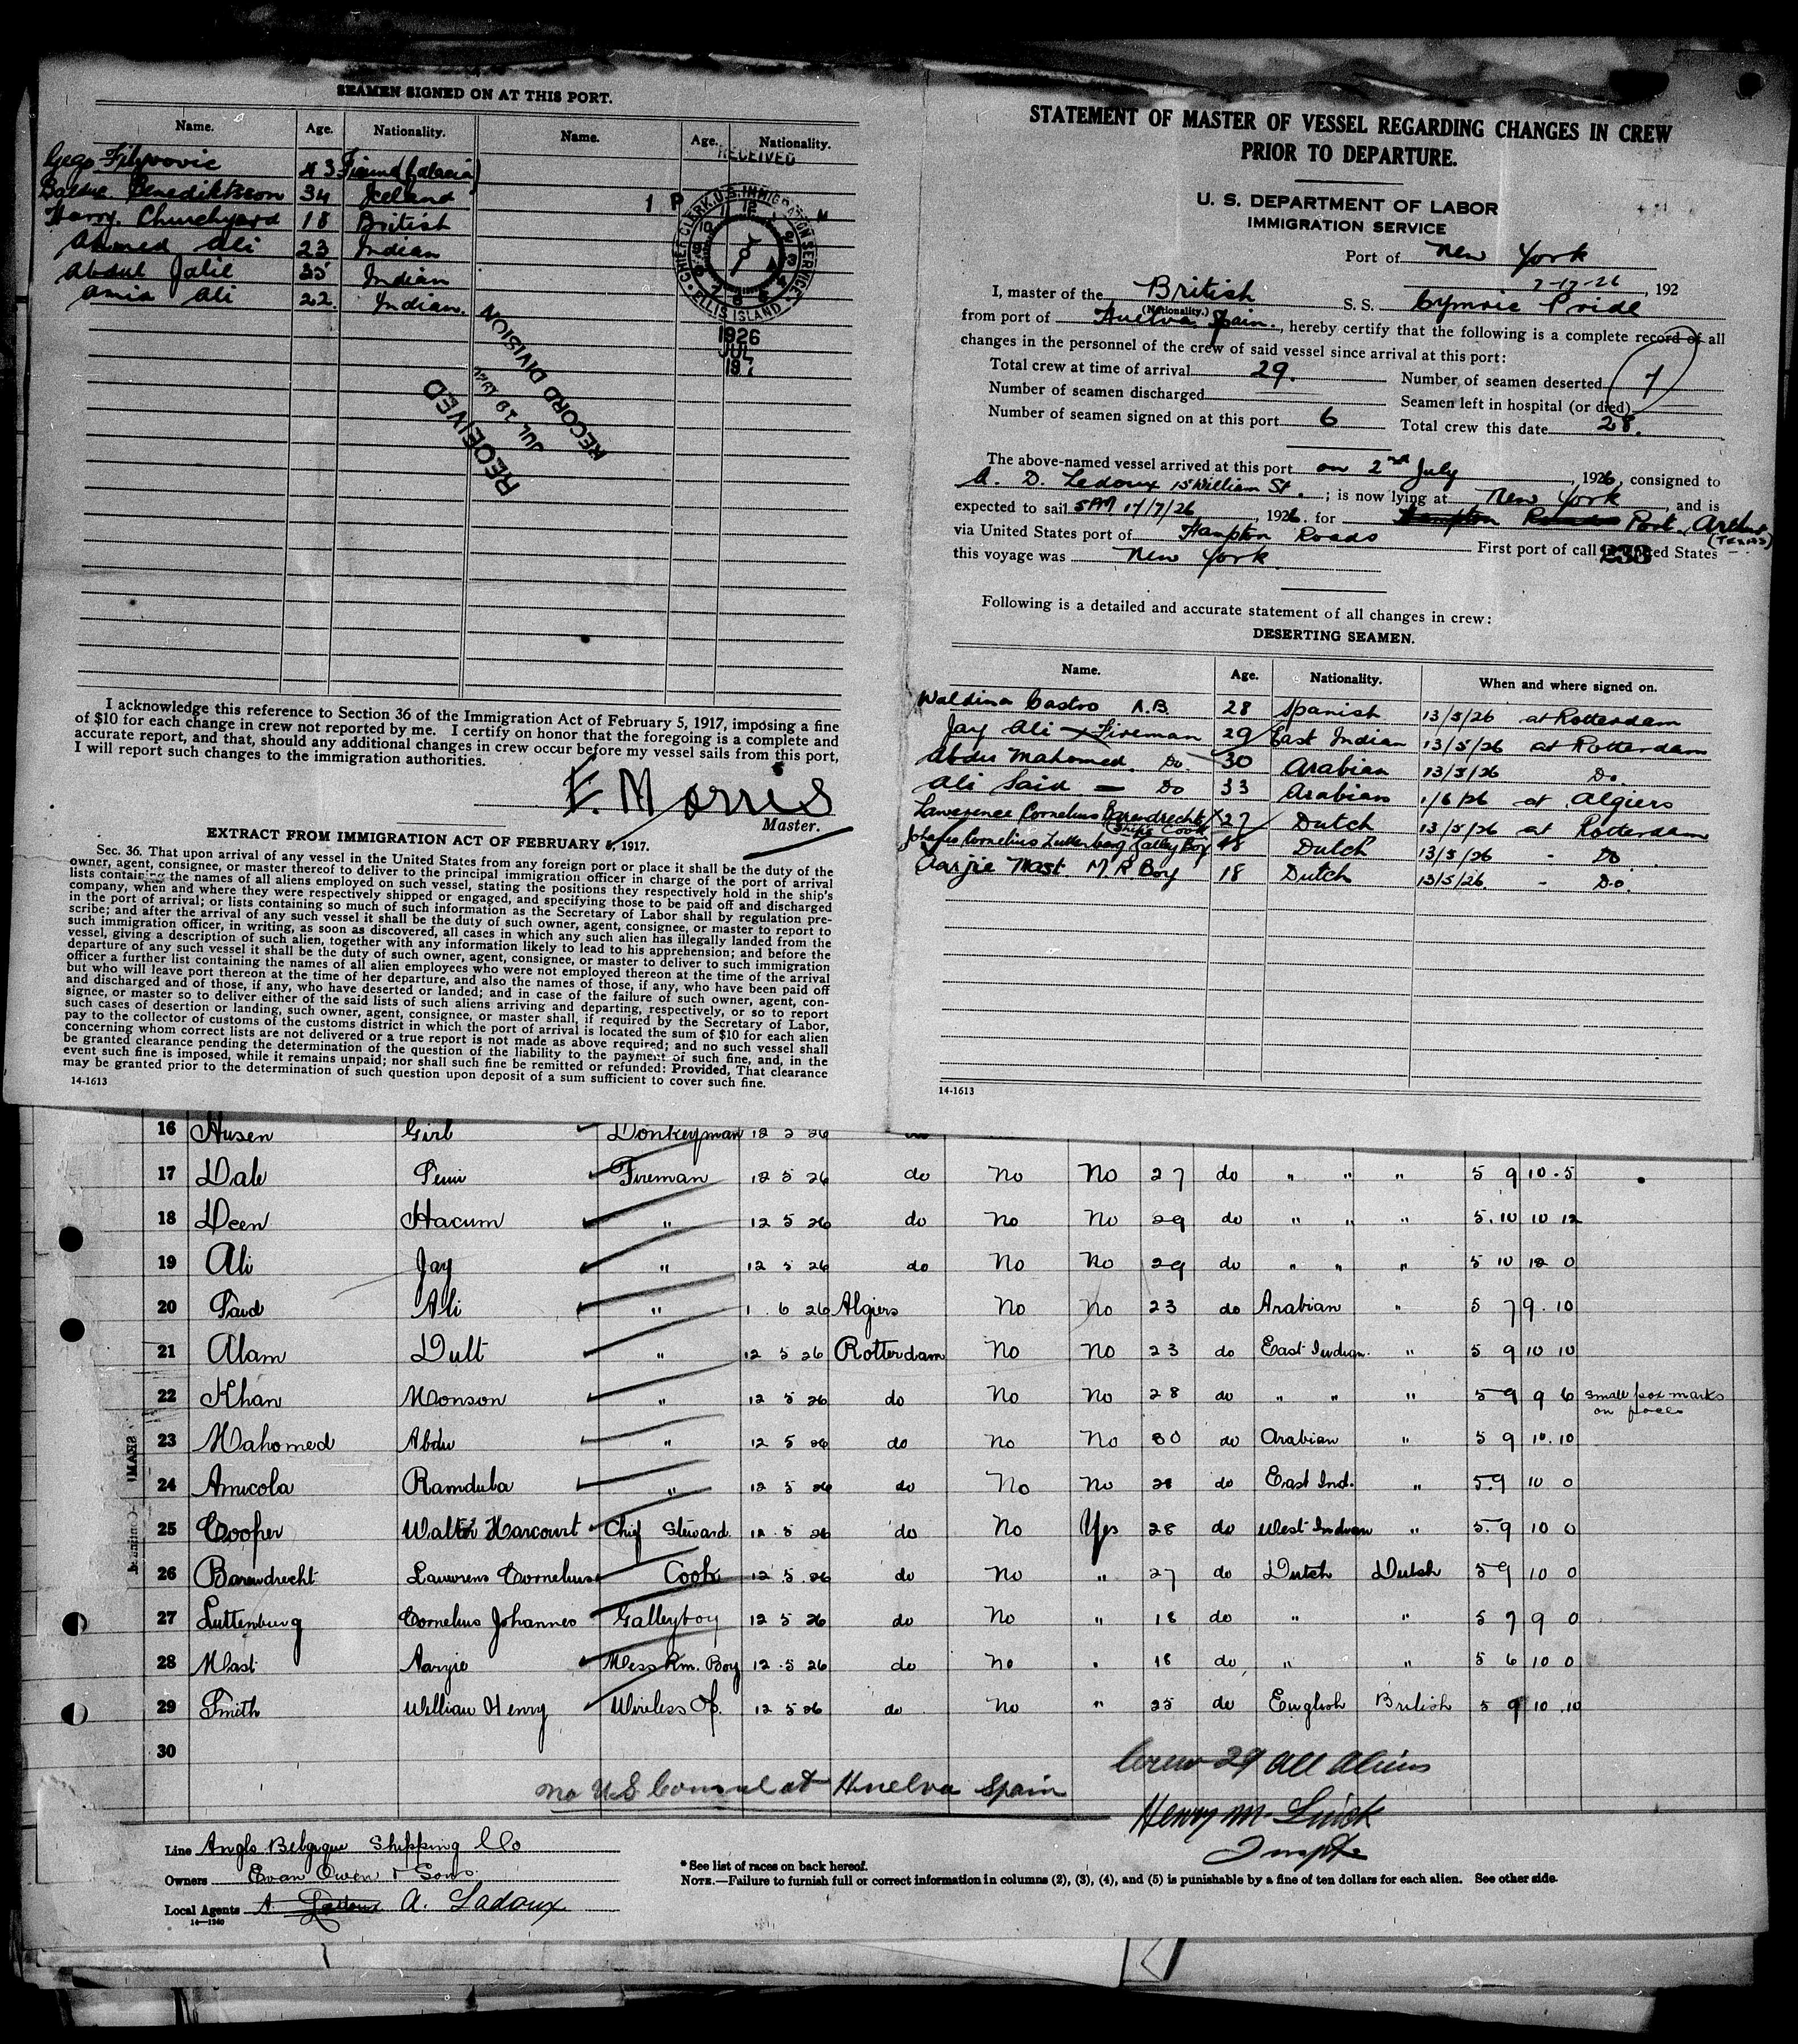 SEAMEN SIGNED ON AT THIS PORT.
Name. Age. Nationality. Name. Age. Nationality.
Filipovic
Benediktsson 34 Iceland
Harry Churchyard 18 British
Ahmed Ali 23 Indian
Abdul Jalil 35 Indian
Amir Ali 22. Indian.
RECEIVED
1 P M
CHIEF CLERK, U.S. IMMIGRATION SERVICE
ELLIS ISLAND
1926
JUL
RECEIVED
JUL 19 1926
RECORD DIVISION
I acknowledge this reference to Section 36 of the Immigration Act of February 5, 1917, imposing a fine
of $10 for each change in crew not reported by me. I certify on honor that the foregoing is a complete and
accurate report, and that, should any additional changes in crew occur before my vessel sails from this port,
I will report such changes to the immigration authorities.
E. Morris
Master.
EXTRACT FROM IMMIGRATION ACT OF FEBRUARY 5, 1917.
Sec. 36. That upon arrival of any vessel in the United States from any foreign port or place it shall be the duty of the
owner, agent, consignee, or master thereof to deliver to the principal immigration officer in charge of the port of arrival
lists containing the names of all aliens employed on such vessel, stating the positions they respectively hold in the ship's
company, when and where they were respectively shipped or engaged, and specifying those to be paid off and discharged
in the port of arrival; or lists containing so much of such information as the Secretary of Labor shall by regulation pre-
scribe; and after the arrival of any such vessel it shall be the duty of such owner, agent, consignee, or master to report to
such immigration officer, in writing, as soon as discovered, all cases in which any such alien has illegally landed from the
vessel, giving a description of such alien, together with any information likely to lead to his apprehension; and before the
departure of any such vessel it shall be the duty of such owner, agent, consignee, or master to deliver to such immigration
officer a further list containing the names of all alien employees who were not employed thereon at the time of the arrival
but who will leave port thereon at the time of her departure, and also the names of those, if any, who have been paid off
and discharged and of those, if any, who have deserted or landed; and in case of the failure of such owner, agent, con-
signee, or master so to deliver either of the said lists of such aliens arriving and departing, respectively, or so to report
such cases of desertion or landing, such owner, agent, consignee, or master shall, if required by the Secretary of Labor,
pay to the collector of customs of the customs district in which the port of arrival is located the sum of $10 for each alien
concerning whom correct lists are not delivered or a true report is not made as above required; and no such vessel shall
be granted clearance pending the determination of the question of the liability to the payment of such fine, and, in the
event such fine is imposed, while it remains unpaid; nor shall such fine be remitted or refunded: Provided, That clearance
may be granted prior to the determination of such question upon deposit of a sum sufficient to cover such fine.
14-1613
STATEMENT OF MASTER OF VESSEL REGARDING CHANGES IN CREW
PRIOR TO DEPARTURE.
U. S. DEPARTMENT OF LABOR
IMMIGRATION SERVICE
Port of New York
7-17-26, 192
I, master of the British S. S. Cymric Pride
(Nationality.)
from port of Huelva Spain., hereby certify that the following is a complete record of all
changes in the personnel of the crew of said vessel since arrival at this port:
Total crew at time of arrival 29. Number of seamen deserted 7
Number of seamen discharged Seamen left in hospital (or died)
Number of seamen signed on at this port 6 Total crew this date 28.
The above-named vessel arrived at this port on 2nd July, 1926, consigned to
A. D. Ledoux 15 William St.; is now lying at New York, and is
expected to sail 5AM 17/7/26, 1926. for Hampton Roads Port Arthur
(TEXAS)
via United States port of Hampton Roads First port of call in United States
238
this voyage was New York.
Following is a detailed and accurate statement of all changes in crew:
DESERTING SEAMEN.
Name. Age. Nationality. When and where signed on.
Waldina Castro A.B. 28 Spanish 13/5/26 at Rotterdam
Jay Ali Fireman 29 East Indian 13/5/26 at Rotterdam
Abdu Mahomed. Do. 30 Arabian 13/5/26 Do.
Ali Said — Do 33 Arabian 1/6/26 at Algiers
Lawerence Cornelius Barendrecht 27 Dutch 13/5/26 at Rotterdam
(Ships Cook
Johanes Cornelius Luttenburg Galley Boy 18 Dutch 13/5/26 - Do
Aarjie Mast M R. Boy 18 Dutch 13/5/26. - Do.
14-1613
16 Husen Girl Donkeyman
17 Dale Fireman 12 5 26 do No No 27 do " " " 5 9 10.5
18 Deen Hacum " 12 5 26 do No No 29 do " " " 5.10 10 12
19 Ali Jay " 12 5 26 do No No 29 do " " " 5 10 12 0
20 Said Ali " 1 6 26 Algiers No No 23 do Arabian " 5 7 9.10
21 Alam Dult " 12 5 26 Rotterdam No No 23 do East Indian. " 5 9 10 10
22 Khan Monson " 12 5 26 do No No 28 do " " " 5 9 9 6 small pox marks
on face
23 Mahomed Abdu " 12 5 26 do No No 30 do Arabian " 5 9 10.10
24 Amicola Ramduba " 12 5 26 do No No 28 do East Ind. " 5.9 10 0
25 Cooper Walter Harcourt Chief Steward. 12.5 26 do No Yes 28 do West Indian " 5.9 10 0
26 Barendrecht Lauwrens Cornelius Cook 12.5.26 do No " 27 do Dutch Dutch 5 9 10 0
27 Luttenburg Cornelius Johannes Galleyboy 12 5 26 do No " 18 do " " 5 7 9 0
28 Mast Aarjie Mess Rm. Boy 12.5 26 do No " 18 do, " " 5 6 10 0
29 Smith William Henry Wireless Op. 12 5 26 do No " 25 do English British 5 9 10.10
30
Crew 29 all aliens
no US Consul at Huelva Spain
Henry M.
Inspt
Line Anglo Belgique Shipping Co
Owners Evan Owen & Sons.
Local Agents A. Ladoux A. Ladoux
14—1240
*See list of races on back hereof.
NOTE.—Failure to furnish full or correct information in columns (2), (3), (4), and (5) is punishable by a fine of ten dollars for each alien. See other side.